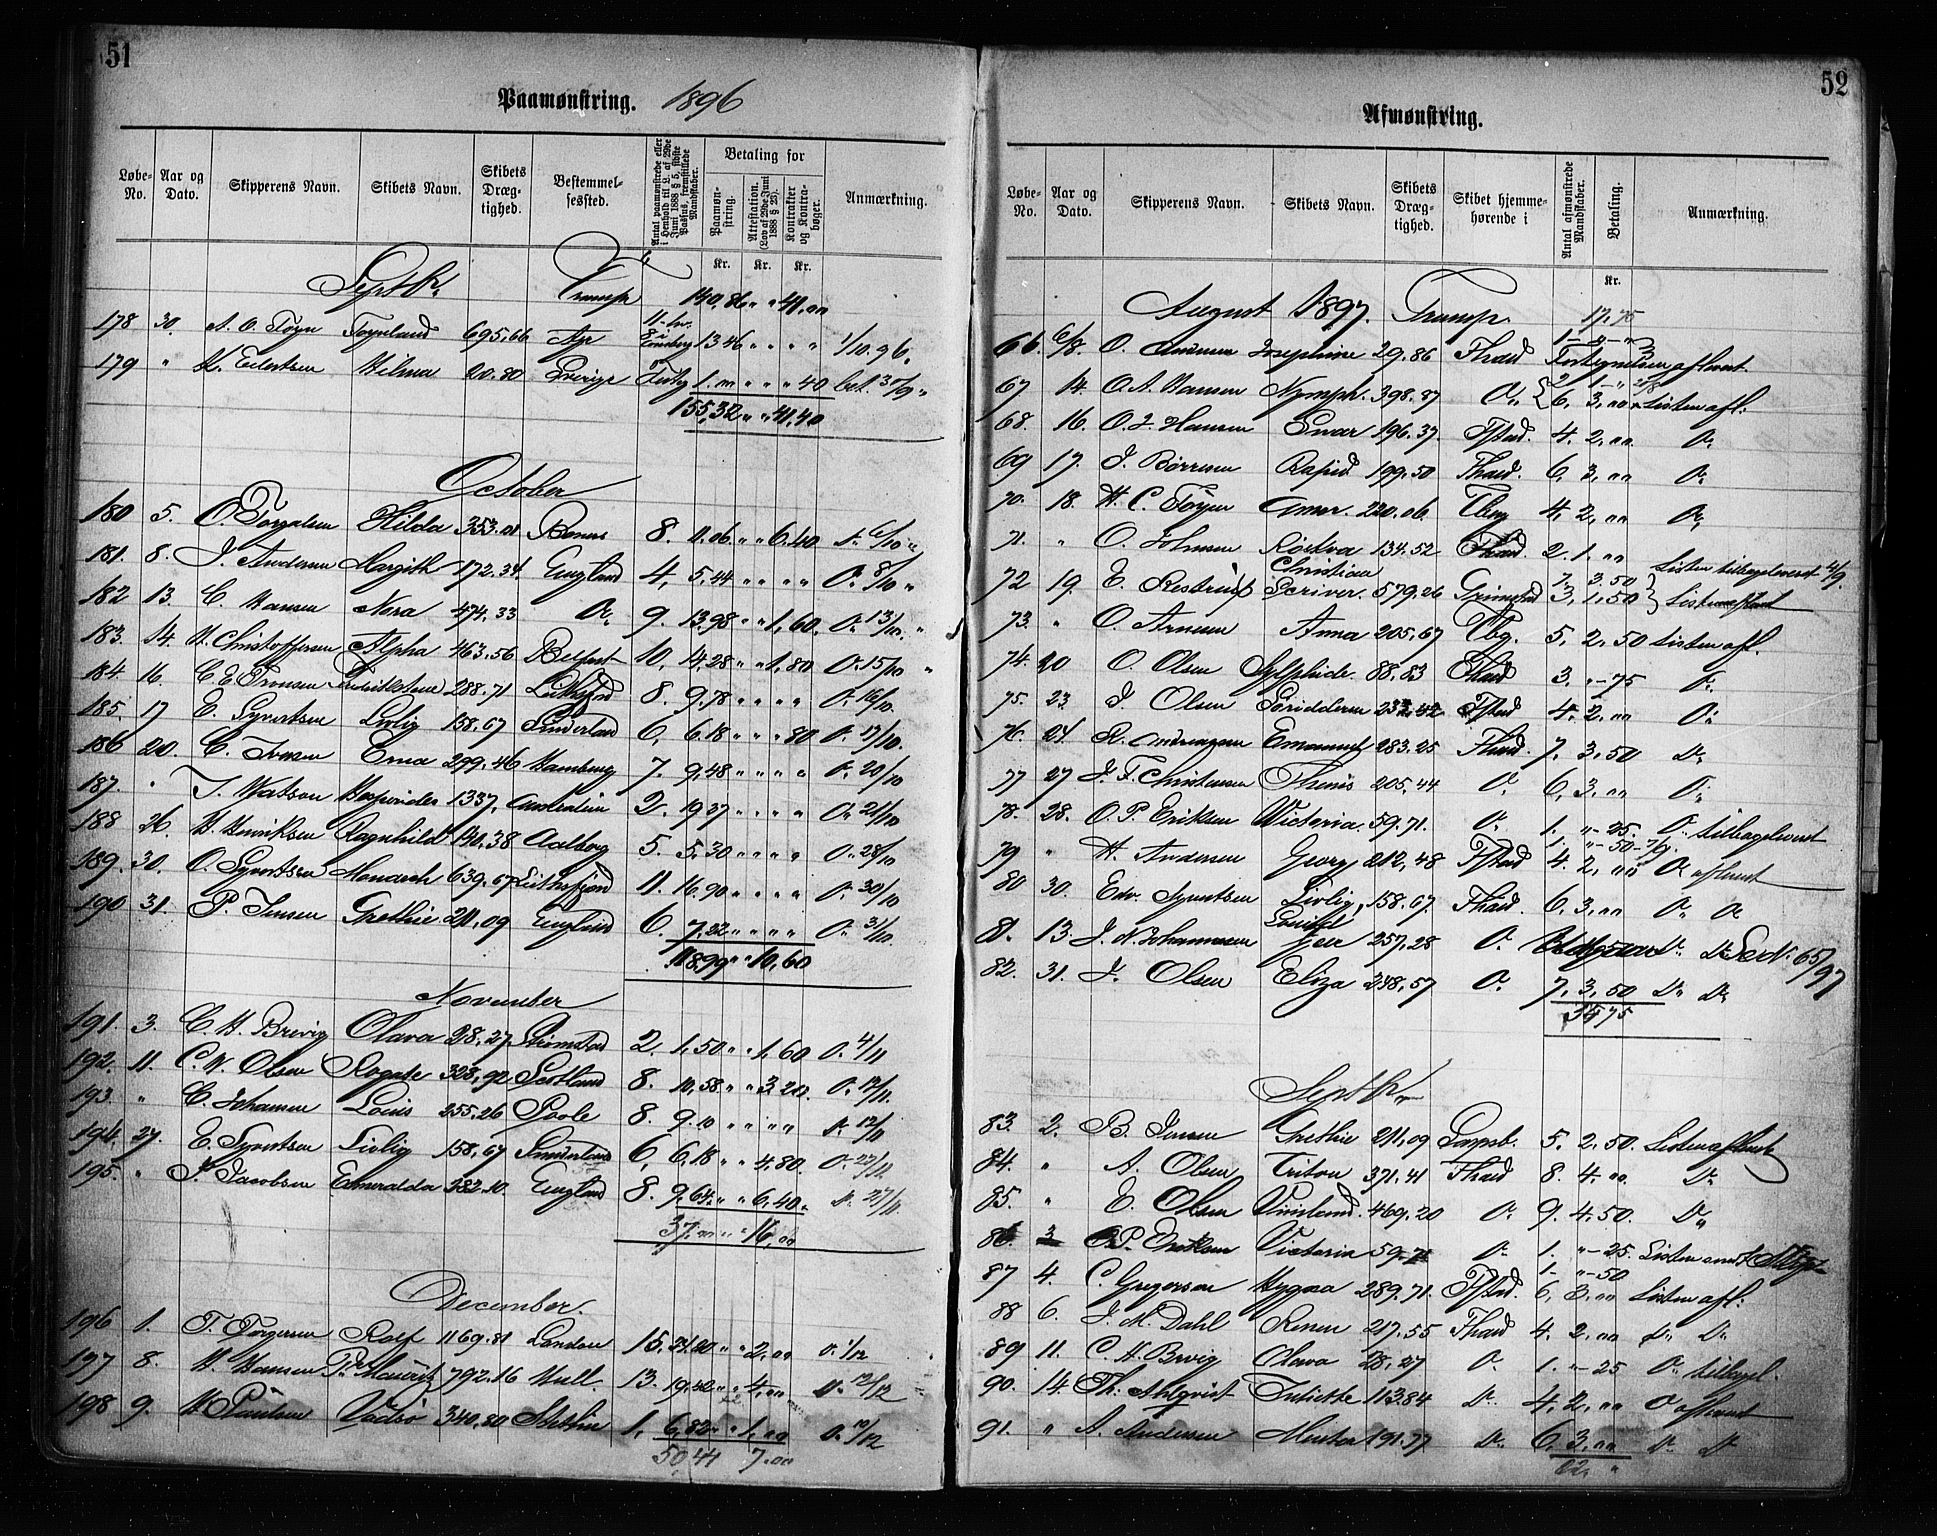 51
Paamønstring. 1896
Løbe-No.
Aar og Dato.
Skipperens Navn.
Skibets Navn.
Skibets Dræg-tighed.
Bestemmel-sessted.
Antal paamønstrede eller i Henhold til L. af 29de Juni 1888 § 5, sidste Passus, fremstillede Mandskaber.
Betaling for
Paamøn-string.
Attestation. (Lov af 29de Juni 1888 § 23).
Kontrakter og Kontra-bøger.
Anmærkning.
Kr. Kr. Kr.
Septbr. Transp. 140,86 " " 41,00
178 30. A. O. Føyn Føynland 695,66 Ayr 13 46 " " " " 1/10 96 "
179 " H. Eilertsen Hilma 20.80 Sverige 1. " " " 40 bet.
155,32 " " 41,40
October
180 5. O. Torgalsen Hilda 353.01 8. 11.06. " " 6,40
181. 8. J. Andersen Margith 172.34 England 4, 5,44 " " " " 8/10 "
182 13. C. Hansen Nora 474,33 Do 9. 13,98 " " 1,60. 13/10 "
183. 14. H. Christoffersen Alpha 463,56 Belfast 10, 14,28 " " 1,80 15/10 "
184. 16. C. E. Tronsen Fredrikstene 288.71 8. 9,78 " " " " 16/10.
185. 17 E. Syvertsen Livlig 158,67 Sunderland 6, 6.18 " " " 80 17/10.
186 20. C. Iversen Erna 299.46 Hamburg 7. 9,48 " " " " 20/10
187. " T. Watson Hesperides 1337, Australien 2. 19 37 " " " " 21/10
188 26. H. Henriksen Ragnhild 140.38 Aalborg 5. 5,30 " " " " 28/10
189. 30. O. Syvertsen Monarch 639,67 Leithsfjord 11. 16,90 " " " " 30/10
190 31. P. Jensen Grethie 211,09 England 6. 7,22 " " " " 31/10.
118,99 " " 10,60
November
191. 3. C. H. Brevig Olava 28,27 Strømstad 2. 1,50 " " 1,60 4/11
192. 11. C. N. Olsen Rogate 328,92 Scotland 8. 10,58. " " 3,20. 12/11.
193. " C. Johansen Louis 255.26 Poole 8. 9.10 " " " " 12/11
194. 27. E. Syvertsen Livlig 158,67 Sunderland 6, 6,18 " " 4,80. 27/11
195. " J. Jacobsen Esmeralda 282.10. England 8. 9,64. " " 6,40. 27/11
37, 00 " " 16,00
December.
196 1. T. Torgersen Rolf 1169.81 London 15, 21,20 " " 2,00 1/12
197 8. H. Hansen Pr. Mauritz 792.16 Hull. 13. 19,42 " " 4,00 12/12
198 9. H Paulsen Vadsø 340,80 Stettin 1, 6,82 " " 1,00 10/12
50,44 7.00
52
Afmønstring.
Løbe-No.
Aar og Dato.
Skipperens Navn.
Skibets Navn.
Skibets Dræg-tighed.
Skibet hjemme-hørende i
Antal afmønstrede Mandskaber.
Betaling.
Anmærkning.
Kr.
August 1897. Transp. 17,75
66. 6/8. O. Andersen Josephine 29.86 Thaid Fortegnelsen afleveret
67 14. O. A. Hansen Nymph. 398.87 Do. 6, 3,00 Listen afl:
68. 16. O. J. Hansen Svar 196.37 Fstad. 4. 2,00 Do
69 17. J. Børresen Rapid 199.50 Thaid. 6, 3,00 Do
70. 18. H. C. Føyen Amor. 220.06. Tbrg 4, 2,00 Do
71. " O. Johnsen Røstva 134.52 Thaid. 2. 1.00 Listen tilbageleveret 4/9.
72 19. E. Restrup Christian Scriver. 579,26 Grimstad 7, 3,50 3, 1,50 Listen afleveret
73. " O. Arnesen Anna 205,67 Tbg. 5, 2,50 Listen afl.
74. 20 O. Olsen Sylphide. 88.83 Thaid 3, " - 75 Do
75. 23 J. Olsen Loridderen 233.42 Fstad 4. 2,00 Do
76. 24. R. Andreassen Emanuel 283.25 Thaid. 7, 3,50 Do
77 27 J. F. Christensen Themis 205,44 Do 6, 3,00 Do
78. 28. O. P. Eriksen Victoria. 59.71. Do 1. " - 25. Do tilbageleveret
1. " - 50
79 " H. Andersen Georg 212,48 Fstad 4. 2,00 Do afleveret
80 30. Edv. Syvertsen Livlig, 158.67. Thaid. 6, 3,00 Do Do
81. 13. J. N. Johannesen Geir 257,28 Do Do Do Se No. 65/97
82. 31. J. Olsen Eliza 248,57 Do 7, 3,50 Do Do
34,75
Septbr.
83. 2. B. Jensen Grethie 211,09 Sarpsb. 5, 2,50. Listen afleveret
84. " A. Olsen Triton 371.41 Thaid 8. 4.00 Do
85. " E. Olsen Vinland. 469,20 Do 9. 4.50. Do
86. 3 O. P. Eriksen Victoria 59.71 Do 1. " - 25. Listen
1 - " - 50
87 4. C. Gregersen Hygæa 289.71. Fstad. 6, 3,00 Listen afl:
88 6. J. M. Dahl Renen 217.55 Thaid 4. 2,00 Do Do
89 11. C. H. Brevig Olava 28,27 Do 1. " - 25 Do tilbagel.
90. 14. Th. Ahlqvist Juliette 113.84 Do 4, 2,00 Do afleveret
91. " A. Andersen Mentor 191.37 Do 6, 3,00 Do Do
22, "